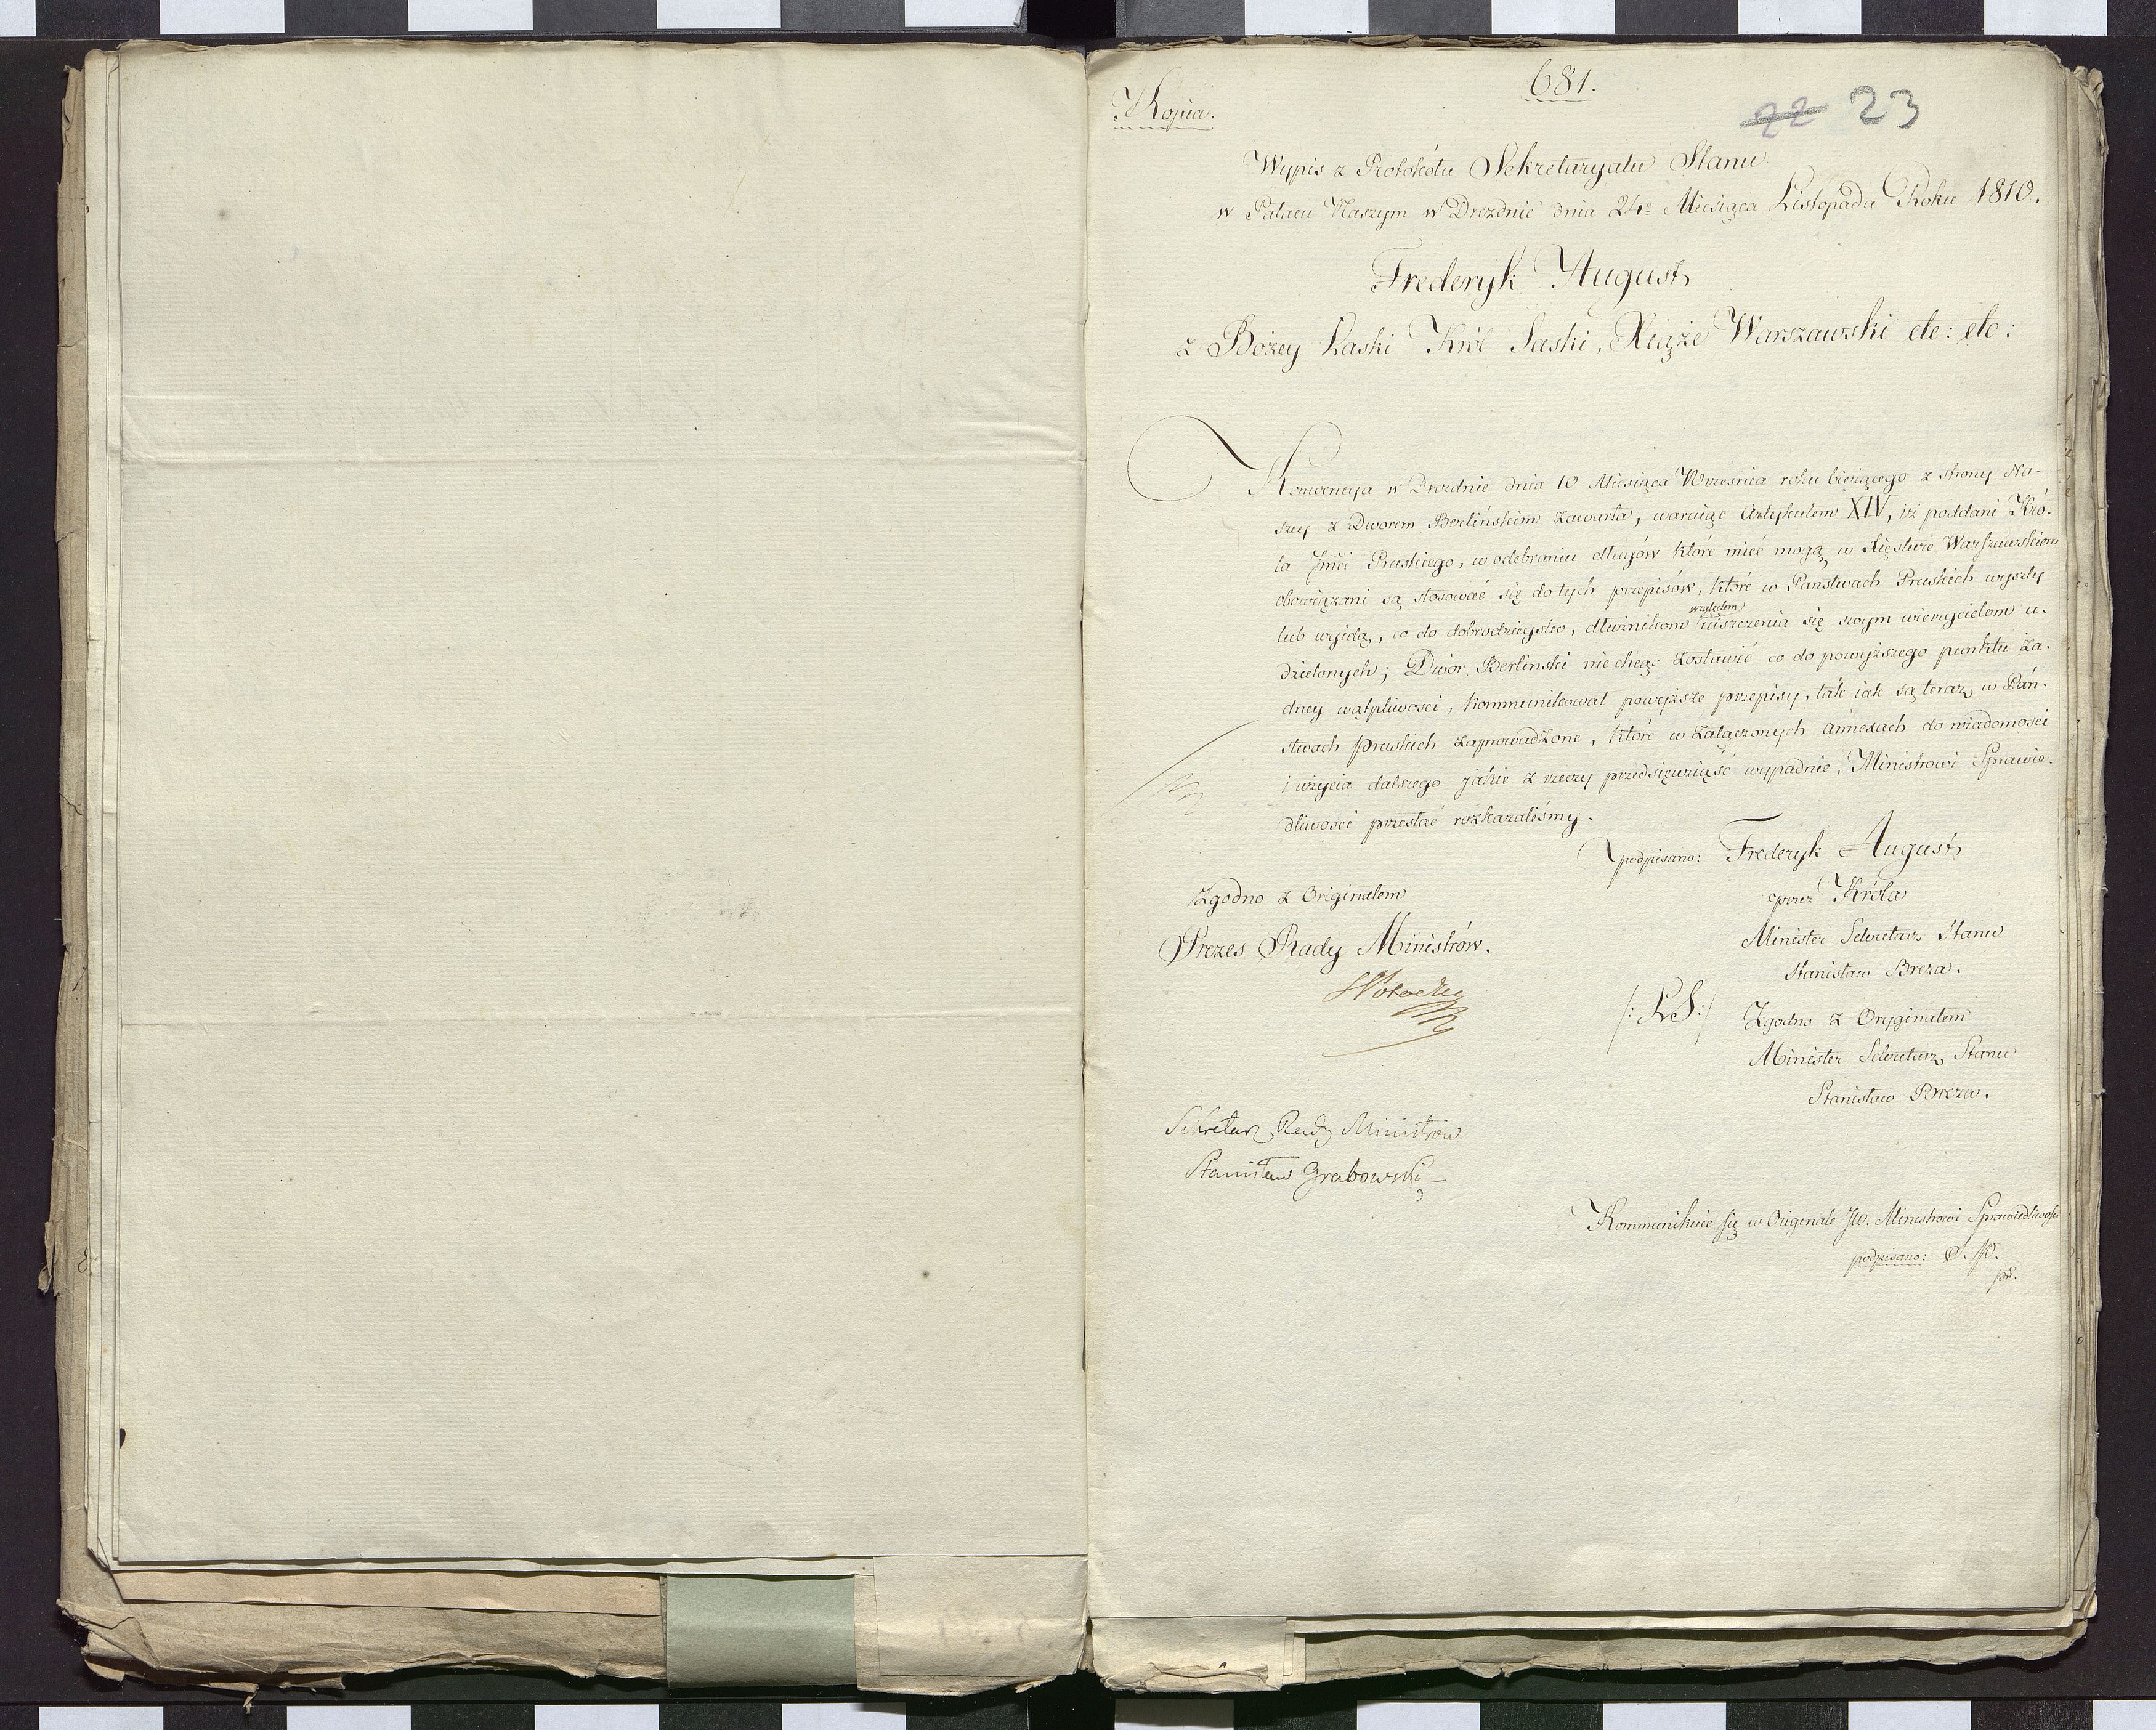 681.
Kopia.
22 23
Wypis z Protokółu Sekretaryatu Stanu
w Pałacu Naszym w Dreznie dnia 24º Miesiąca Listopada Roku 1810.
Frederyk August
z Bożey Łaski Król Saski, Xiąże Warszawski etc: etc:
Konwencya w Dreznie dnia 10 Miesiąca Września roku bieżącego z strony Na-
szey z Dworem Berlińskim zawarta, waruiąc Artykułem XIV, iż poddani Kró-
la Jmći Pruskiego, w odebraniu długów które mieć mogą w Xięstwie Warszawskiem
obowiązani są stosować się do tych przepisów, które w Panstwach Pruskich wyszły
lub wyidą, co do dobrodzieystw, dłużnikom względem uiszczenia się swym wierzycielom u-
dzielonych; Dwór Berlinski nie chcąc zostawić co do powyższego punktu ża-
dney wątpliwosci, kommunikował powyższe przepisy, tak iak są teraz w Pań-
stwach pruskich zaprowadzone, które w załączonych annexach do wiadomosci
i użycia dalszego jakie z rzeczy przedsięwziąść wypadnie, Ministrowi Sprawie-
dliwosci przesłać rozkazaliśmy.
podpisano: Frederyk August
przez Króla
Minister Sekretarz Stanu
Stanisław Breza.
/: LS :/
Zgodno z Oryginałem
Minister Sekretarz Stanu
Stanisław Breza.
Zgodno z Originałem
Prezes Rady Ministrów.
SPotocki
Sekretarz Rady Ministrow
Stanisław Grabowski
Kommunikuie się w Originale JW. Ministrowi Sprawiedliwości
podpisano: S. P.